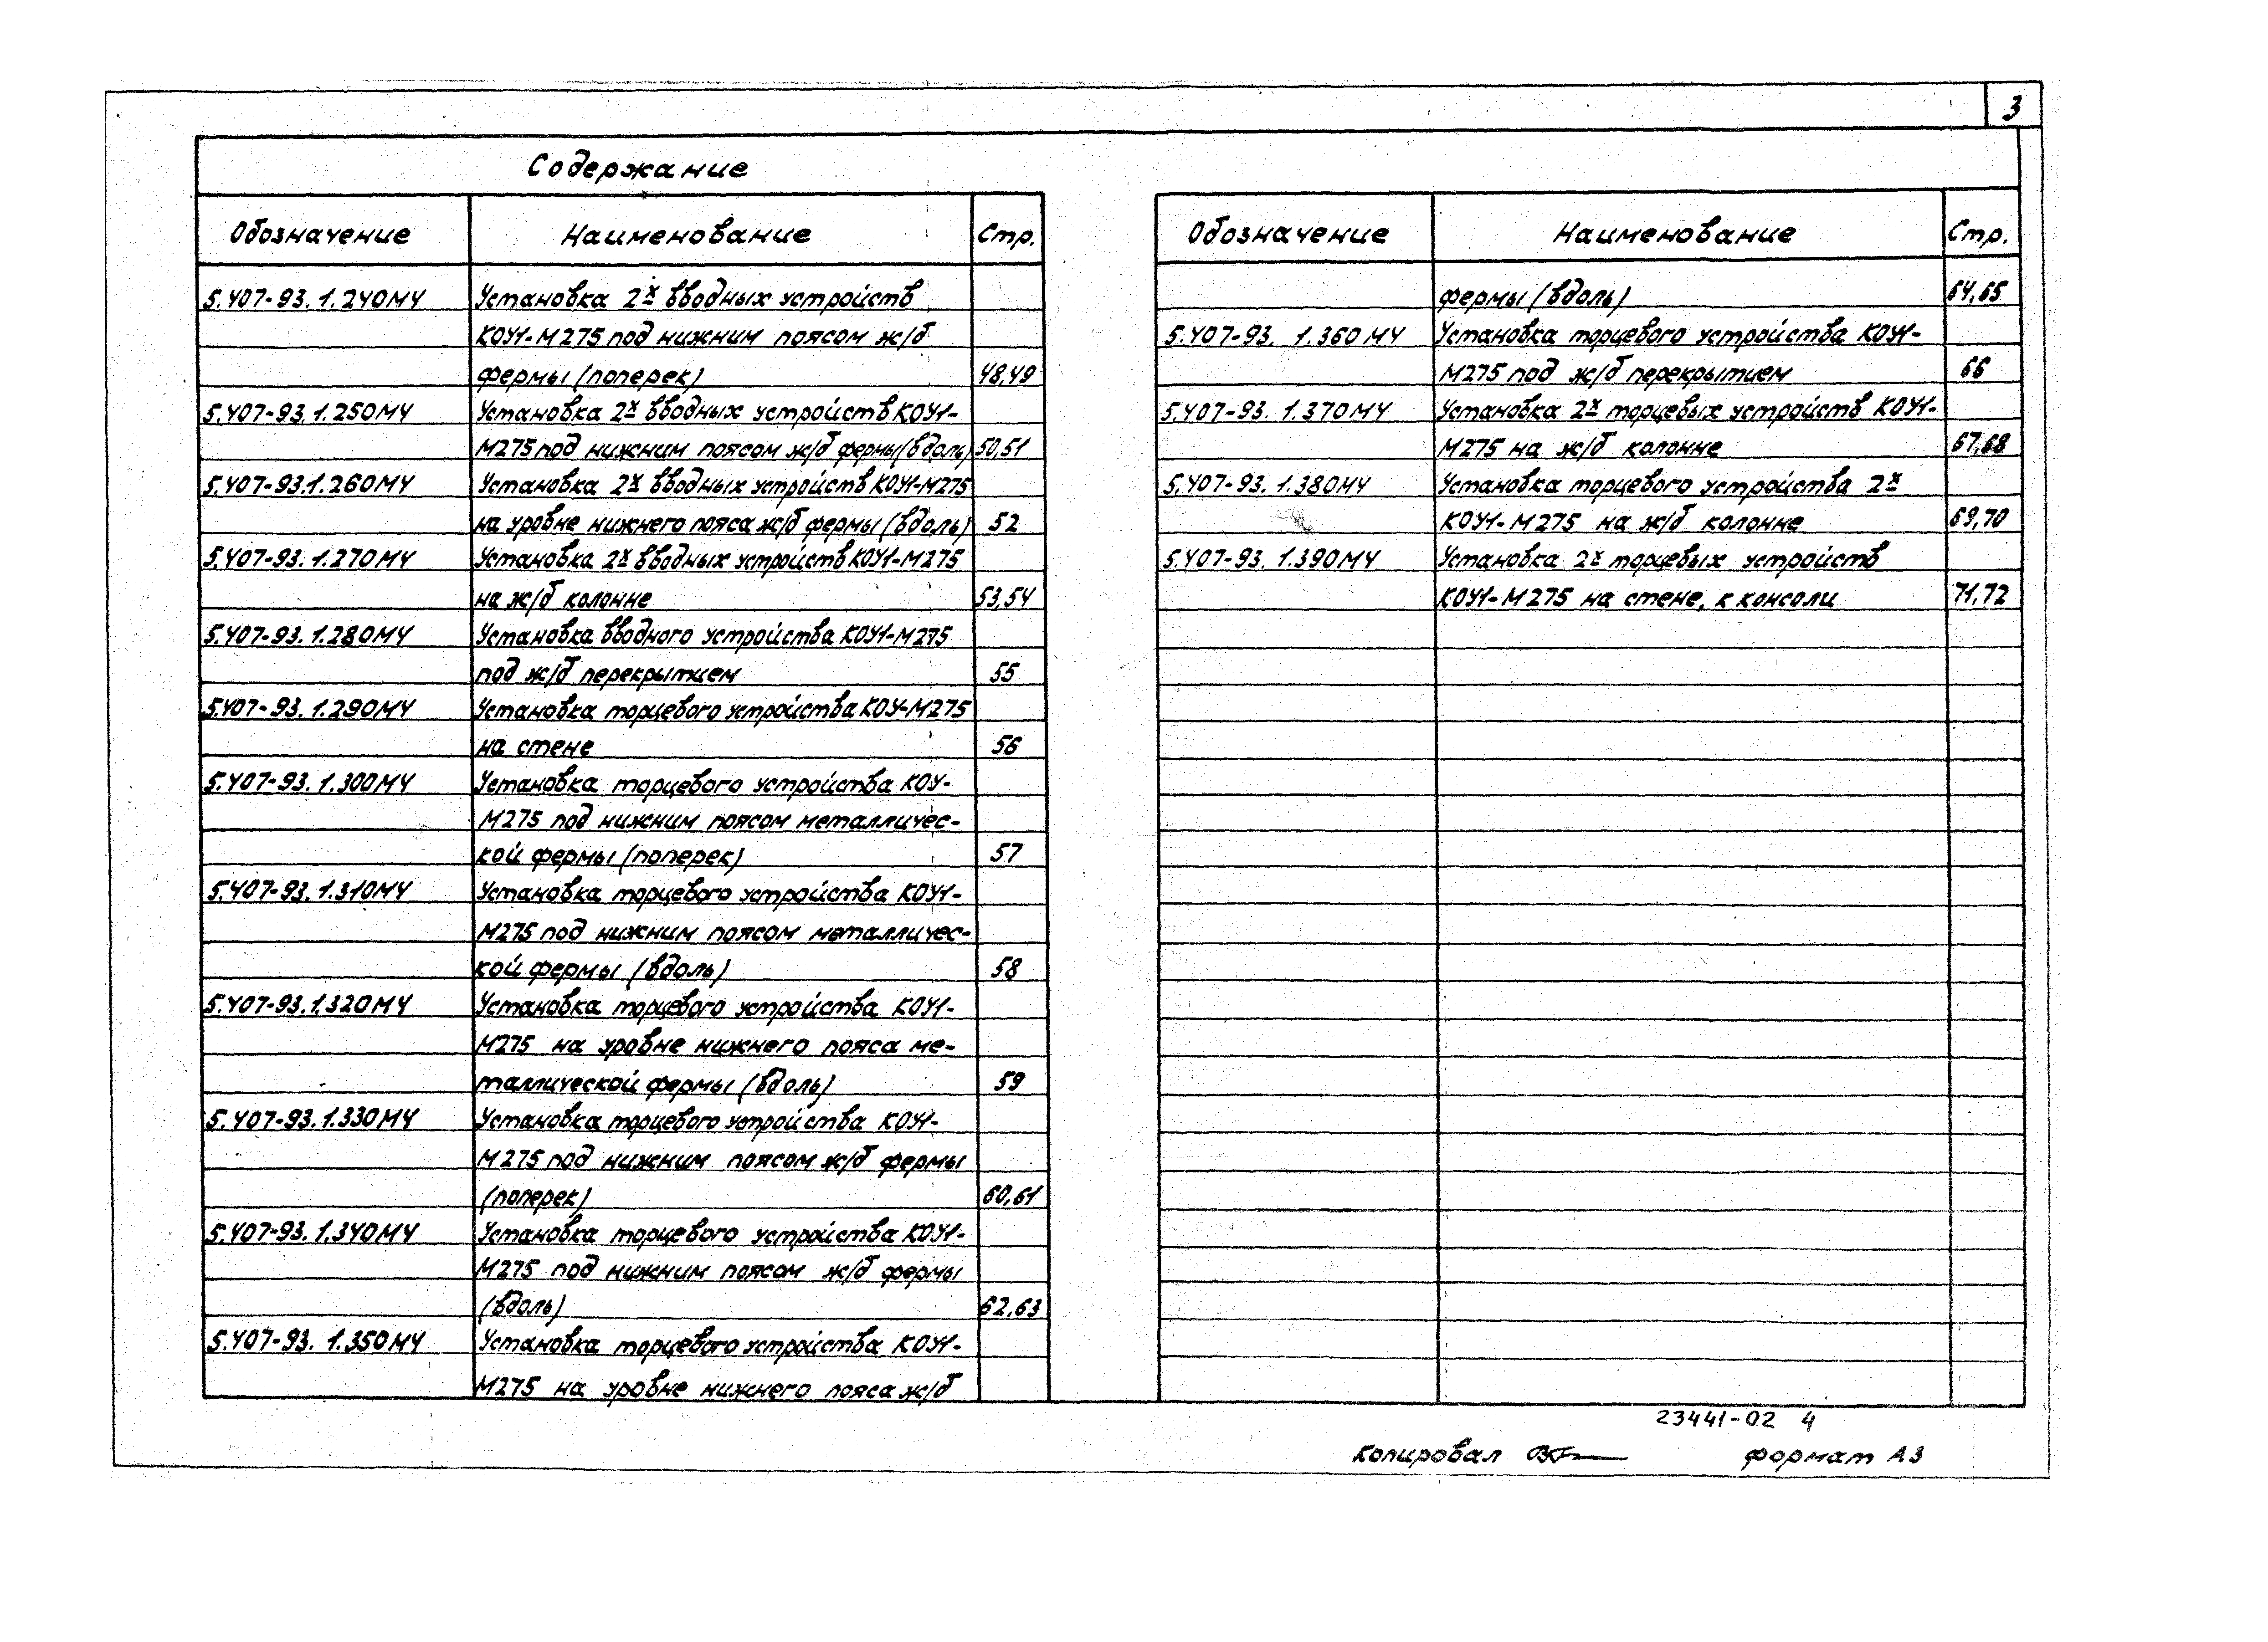 3
Содержание
Обозначение Наименование Стр.
5.407-93.1.240МЧ Установка 2х вводных устройств
КОУ1-М275 под нижним поясом ж/б
фермы (поперек) 48,49
5.407-93.1.250МЧ Установка 2х вводных устройств КОУ1-
М275 под нижним поясом ж/б фермы (вдоль) 50,51
5.407-93.1.260МЧ Установка 2х вводных устройств КОУ1-М275
на уровне нижнего пояса ж/б фермы (вдоль) 52
5.407-93.1.270МЧ Установка 2х вводных устройств КОУ1-М275
на ж/б колонне 53,54
5.407-93.1.280МЧ Установка вводного устройства КОУ1-М275
под ж/б перекрытием 55
5.407-93.1.290МЧ Установка торцевого устройства КОУ-М275
на стене 56
5.407-93.1.300МЧ Установка торцевого устройства КОУ-
М275 под нижним поясом металличес-
кой фермы (поперек) 57
5.407-93.1.310МЧ Установка торцевого устройства КОУ1-
М275 под нижним поясом металличес-
кой фермы (вдоль) 58
5.407-93.1.320МЧ Установка торцевого устройства КОУ1-
М275 на уровне нижнего пояса ме-
таллической фермы (вдоль) 59
5.407-93.1.330МЧ Установка торцевого устройства КОУ1-
М275 под нижним поясом ж/б фермы
(поперек) 60,61
5.407-93.1.340МЧ Установка торцевого устройства КОУ1-
М275 под нижним поясом ж/б фермы
(вдоль) 62,63
5.407-93.1.350МЧ Установка торцевого устройства КОУ1-
М275 на уровне нижнего пояса ж/б
Обозначение Наименование Стр.
фермы (вдоль) 64,65
5.407-93.1.360МЧ Установка торцевого устройства КОУ1-
М275 под ж/б перекрытием 66
5.407-93.1.370МЧ Установка 2х торцевых устройств КОУ1-
М275 на ж/б колонне 67,68
5.407-93.1.380МЧ Установка торцевого устройства 2х
КОУ1-М275 на ж/б колонне 69,70
5.407-93.1.390МЧ Установка 2х торцевых устройств
КОУ1-М275 на стене, к консоли 71,72
23441-02 4
Копировал формат А3